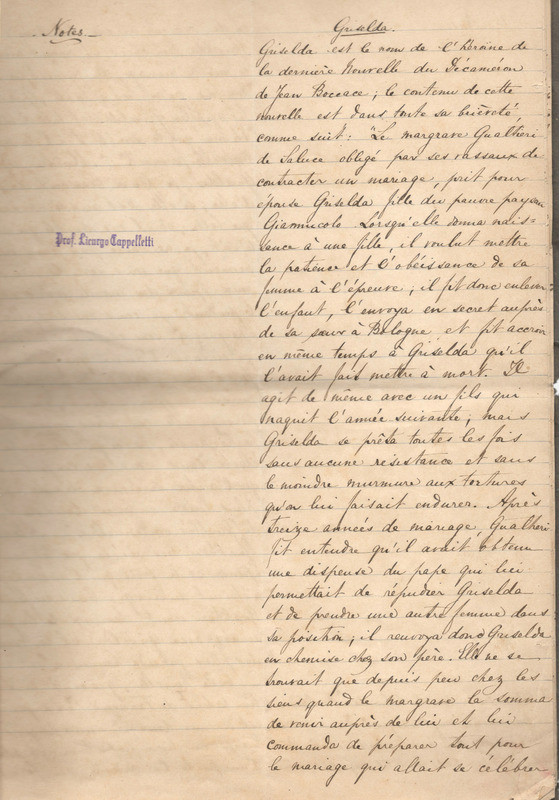 Notes.
Griselda.
Griselda est le nom de l'héroïne de
la dernière Nouvelle du Décaméron
de Jean Boccace; le contenu de cette
nouvelle est dans toute sa brièveté,
comme suit: "Le margrave Gualtieri
de Saluce obligé par ses vassaux de
contracter un mariage, prit pour
épouse Griselda fille du pauvre paysan
Giannucolo Lorsqu'elle donna nais=
sance à une fille, il voulut mettre
la patience et l'obéissance de sa
femme à l'épreuve; il fit donc enlever
l'enfant, l'envoya en secret auprès
de sa sœur à Bologne et fit accroire
en même temps à Griselda qu'il
l'avait fait mettre à mort. Il
agit de même avec un fils qui
naquit l'année suivante; mais
Griselda se prêta toutes les fois
sans aucune résistance et sans
le moindre murmure aux tortures
qu'on lui faisait endurer. Après
treize années de mariage Gualtieri
fit entendre qu'il avait obtenu
une dispense du pape qui lui
permettait de répudier Griselda
et de prendre une autre femme dans
sa position; il renvoya donc Griselda
en chemise chez son père. Elle ne se
trouvait que depuis peu chez les
siens quand le margrave la somma
de venir auprès de lui et lui
commanda de préparer tout pour
le mariage qui allait se célébrer
Prof. Licurgo Cappelletti